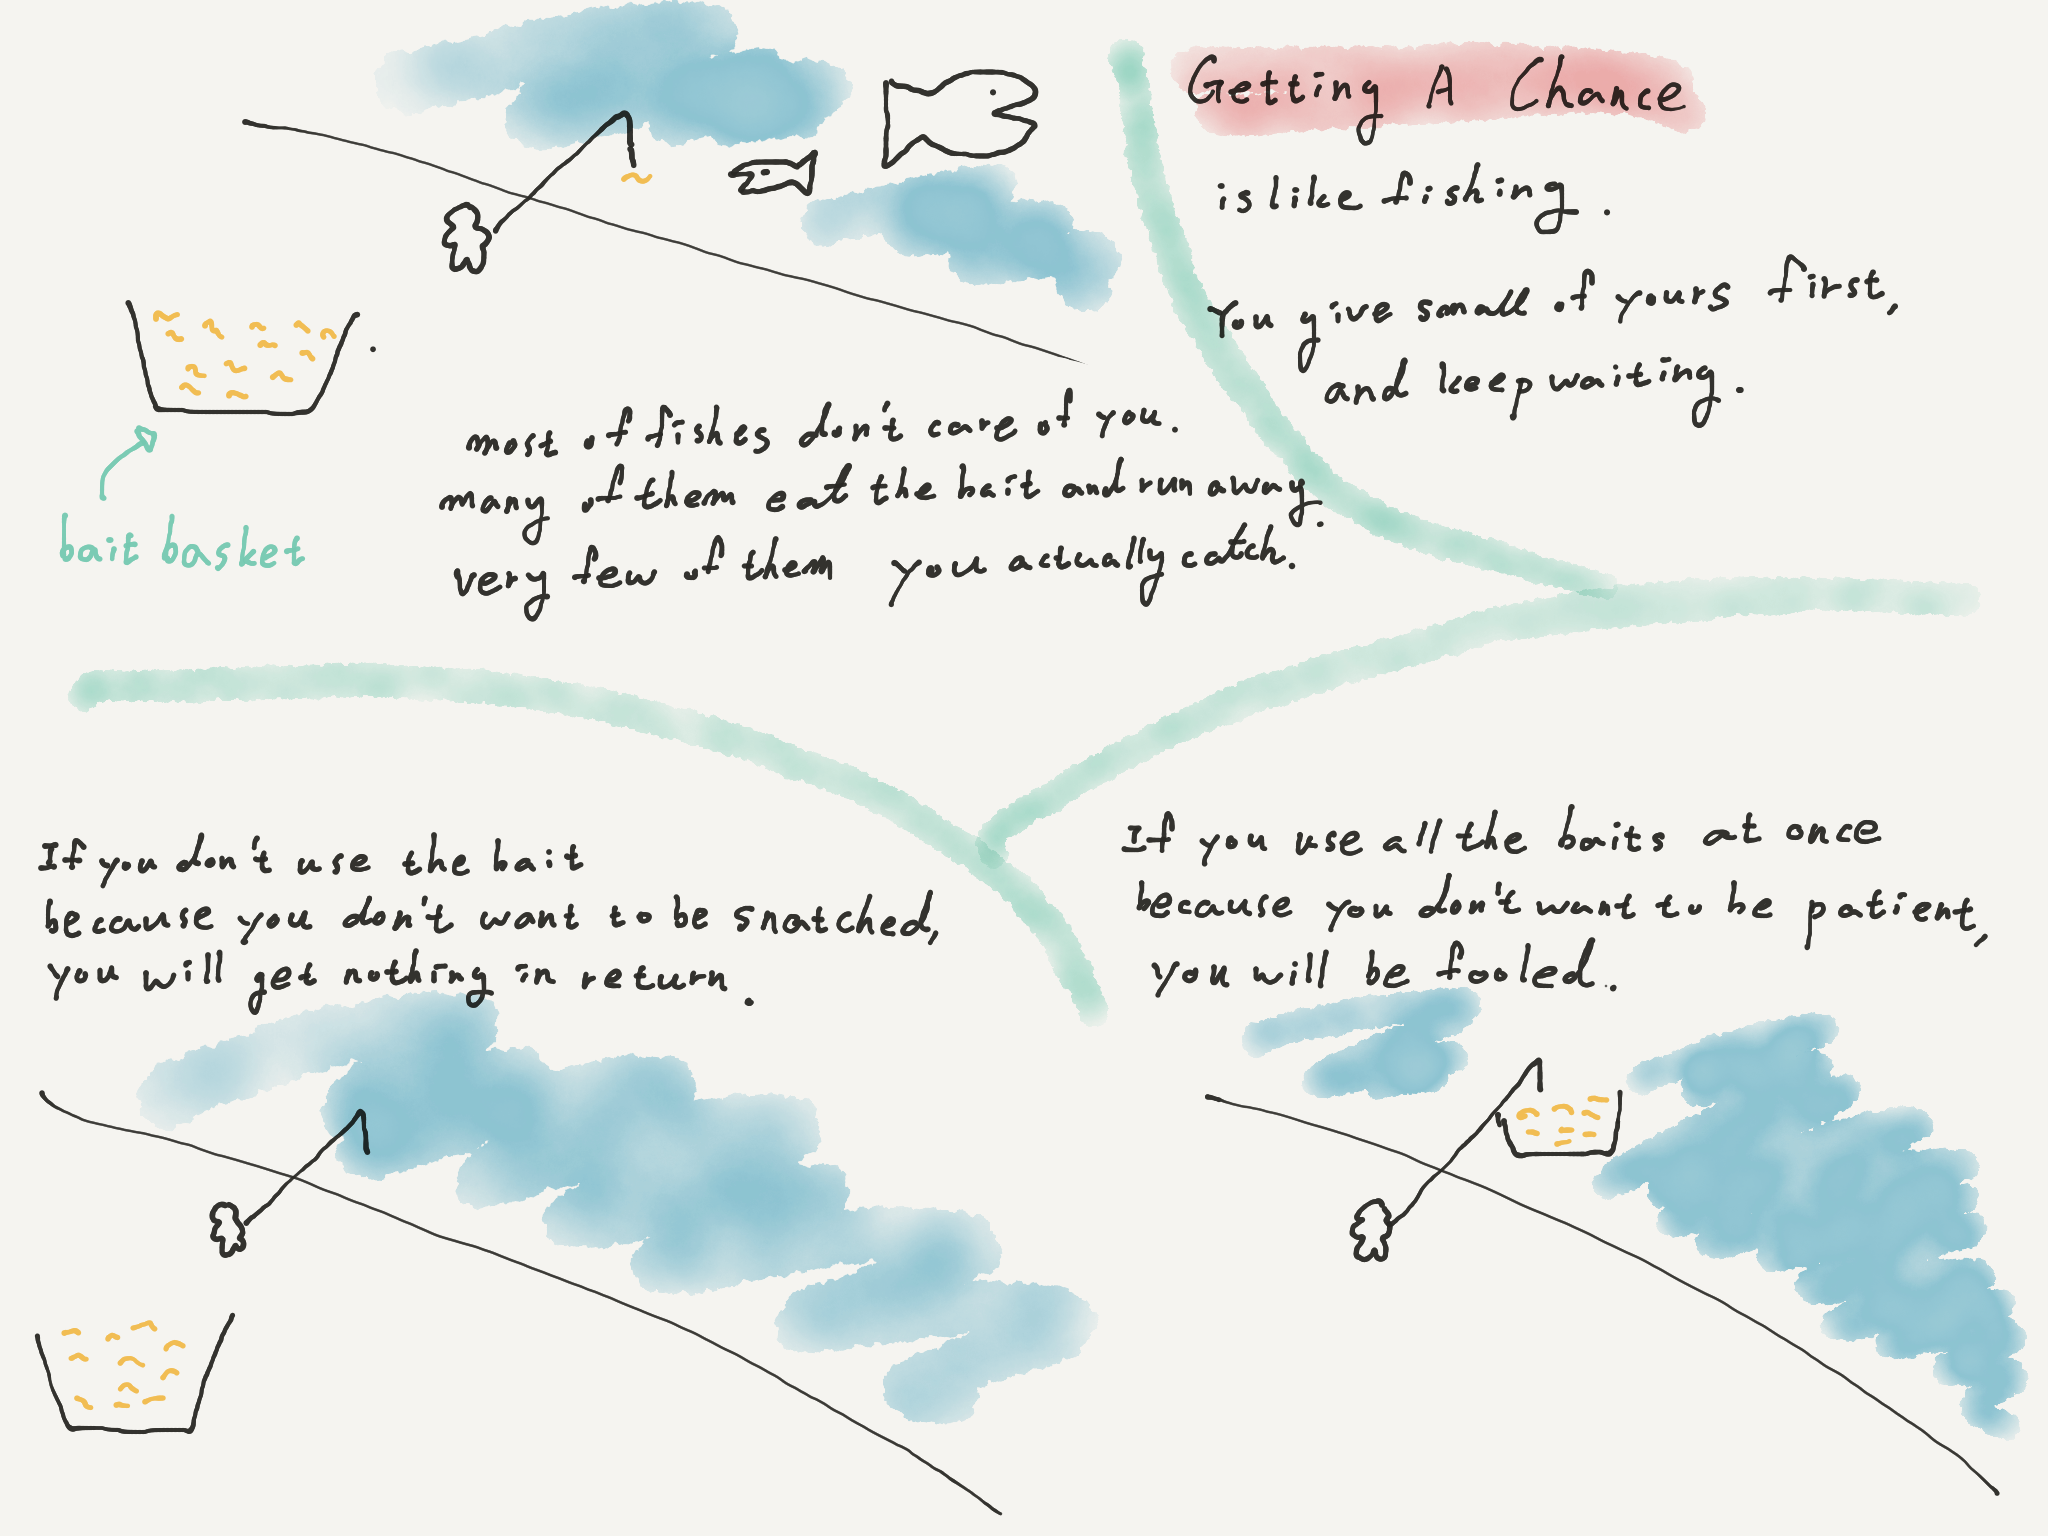 Getting A Chance
is like fishing.
You give small of yours first,
and keep waiting.
most of fishes don't care of you.
many of them eat the bait and run away.
very few of them you actually catch.
bait basket
If you don't use the bait
because you don't want to be snatched,
you will get nothing in return.
If you use all the baits at once
because you don't want to be patient,
you will be fooled.